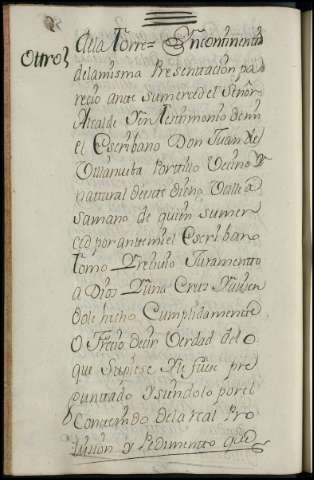 Ottro?
dela Torre = Yncontinenti
dela misma Presentacion pa
recio ante sumerced el Señor
Alcalde Yen Testimonio demi
el Escribano Don Juan de
Villanueba Portillo Vecino Y
nattural deeste dicho Valle de
Samano de quien sumer
ced por antemi el Escribano
tomo Y rebiuio Juramento
a Dios Y una Cruz Y auien
dole hecho Cumplidamente
O Frecio decir Verdad delo
que Supiese Y le fuese pre
guntado Y siendolo por el
Conttenido dela real Pro
bision y Pedimentto que